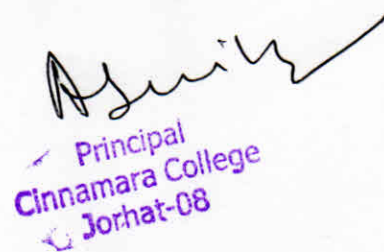 Principal
Cinnamara College
Jorhat-08